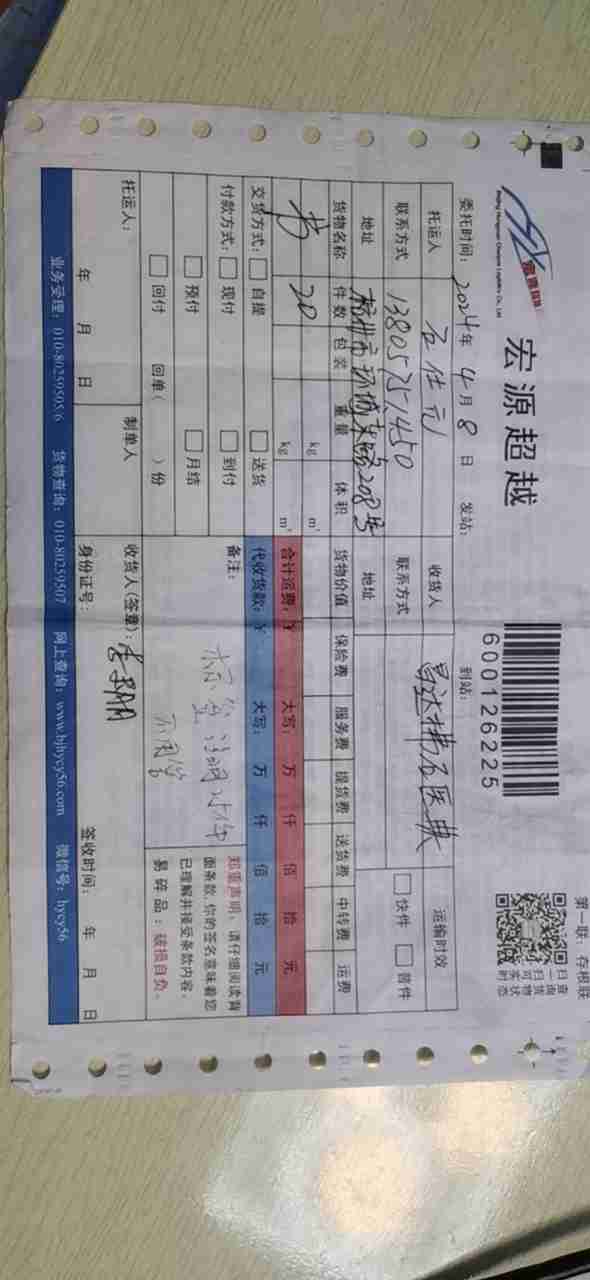 第一联：存根联
宏源超越
Beijing Hongyuan Chaoyue Logistics Co., Ltd
600126225
扫一扫
查询货物
可实时状态
委托时间：2024年4月8日 发站： 到站：
托运人 收货人 昌达 医 运输时效
联系方式 13805751450 联系方式 快件 普件
地址 杭州市环城东路208号 地址
货物名称 件数 包装 重量 体积 货物价值 保险费 服务费 提货费 送货费 中转费 运费
kg m³
书 20 kg m³ 合计运费：¥ 大写： 万 仟 佰 拾 元
交货方式： 自提 送货 代收货款：¥ 大写： 万 仟 佰 拾 元
付款方式： 现付 到付 备注：
预付 月结
回付 回单( )份
郑重声明：请仔细阅读背
面条款，你的签名意味着您
已理解并接受条款内容。
易碎品：破损自负。
托运人： 制单人 收货人(签章)：
年 月 日 身份证号： 签收时间： 年 月 日
业务受理：010-80259505/6 货物查询：010-80259507 网上查询：www.bjhycy56.com 微信号：hycy56